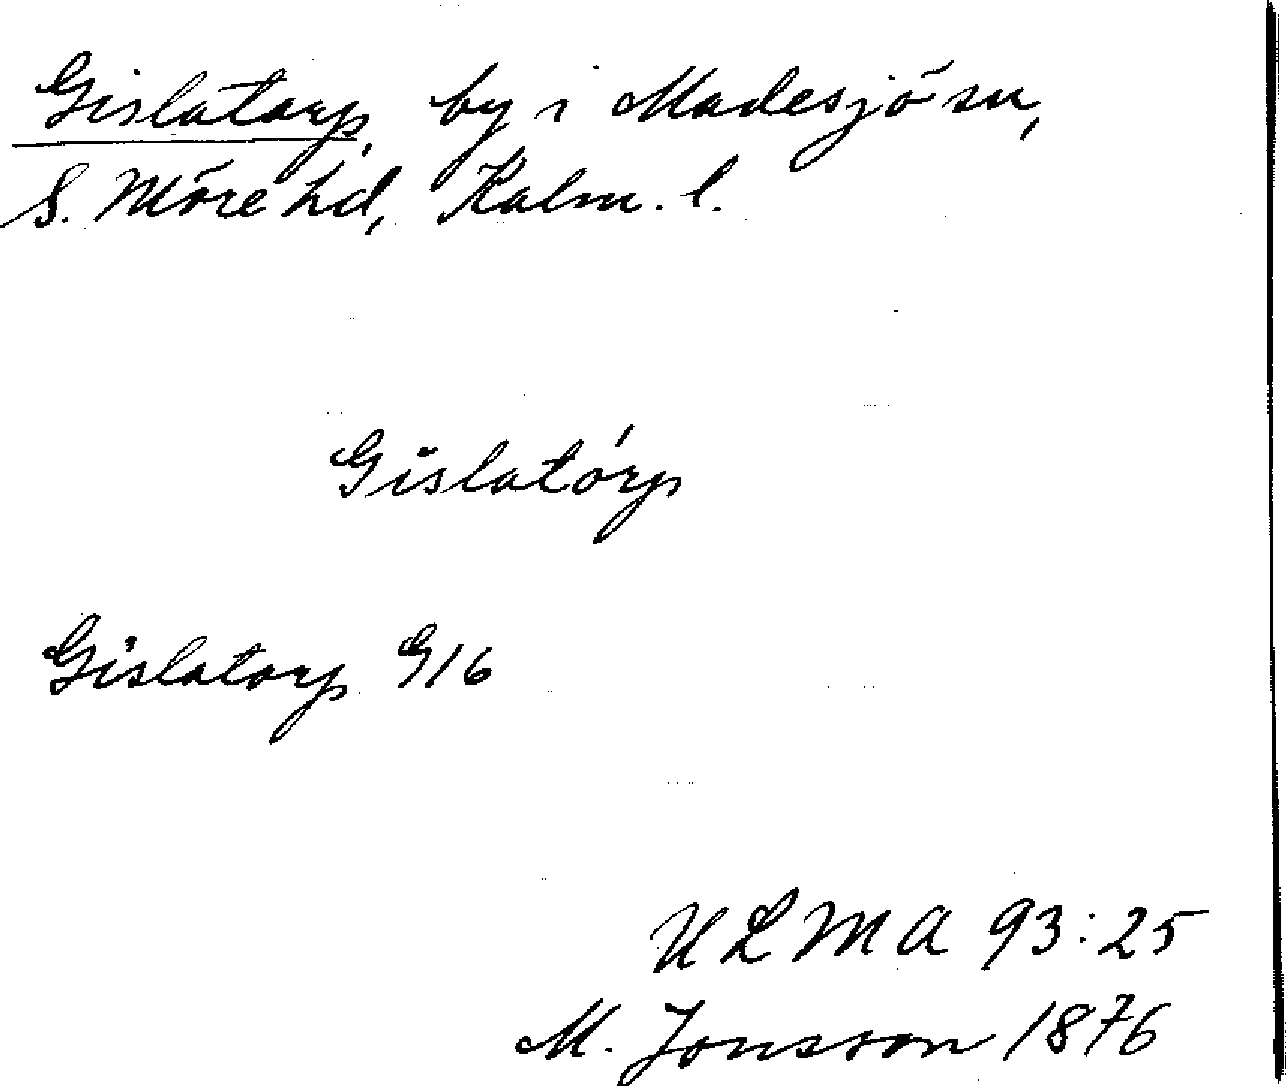 Gislatorp, by i Madesjö sn,
S. Möre hd, Kalm. l.
Gislatórp
Gislatorp G16
ULMA 93:25
M. Jonsson 1876